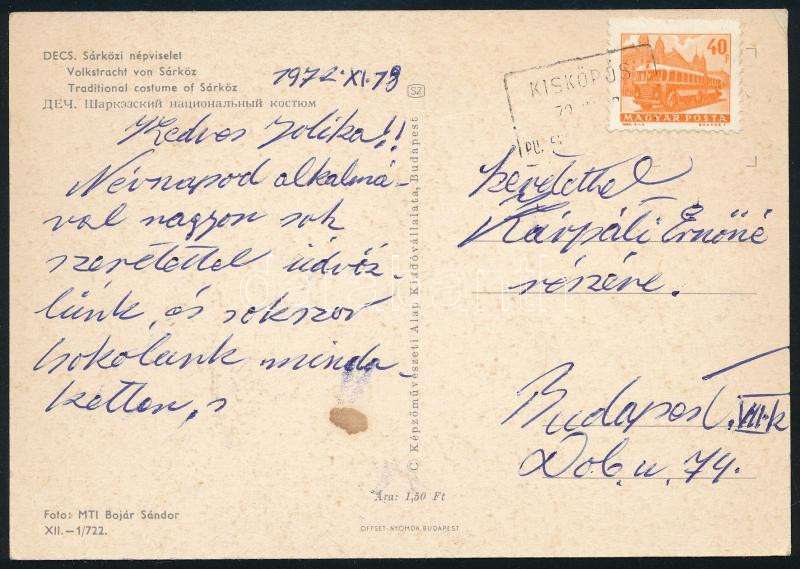 DECS. Sárközi népviselet
Volkstracht von Sárköz
Traditional costume of Sárköz
ДЕЧ. Шаркэзский национальный костюм
1972·XI·13
Kedves Jolika!!
Névnapod alkalmá-
val nagyon sok
szeretettel üdvöz-
lünk, és sokszor
csokolunk minda-
ketten, s
Foto: MTI Bojár Sándor
XII.—1/722.
SZ
© Képzőművészeti Alap Kiadóvállalata, Budapest
Ára: 1,50 Ft
OFFSET-NYOMDA, BUDAPEST
KISKŐRÖS
40 f
MAGYAR POSTA
szeretettel
Kárpáti Ernőné
részére.
Budapest. VII. k
Dob. u. 74.
darabanth